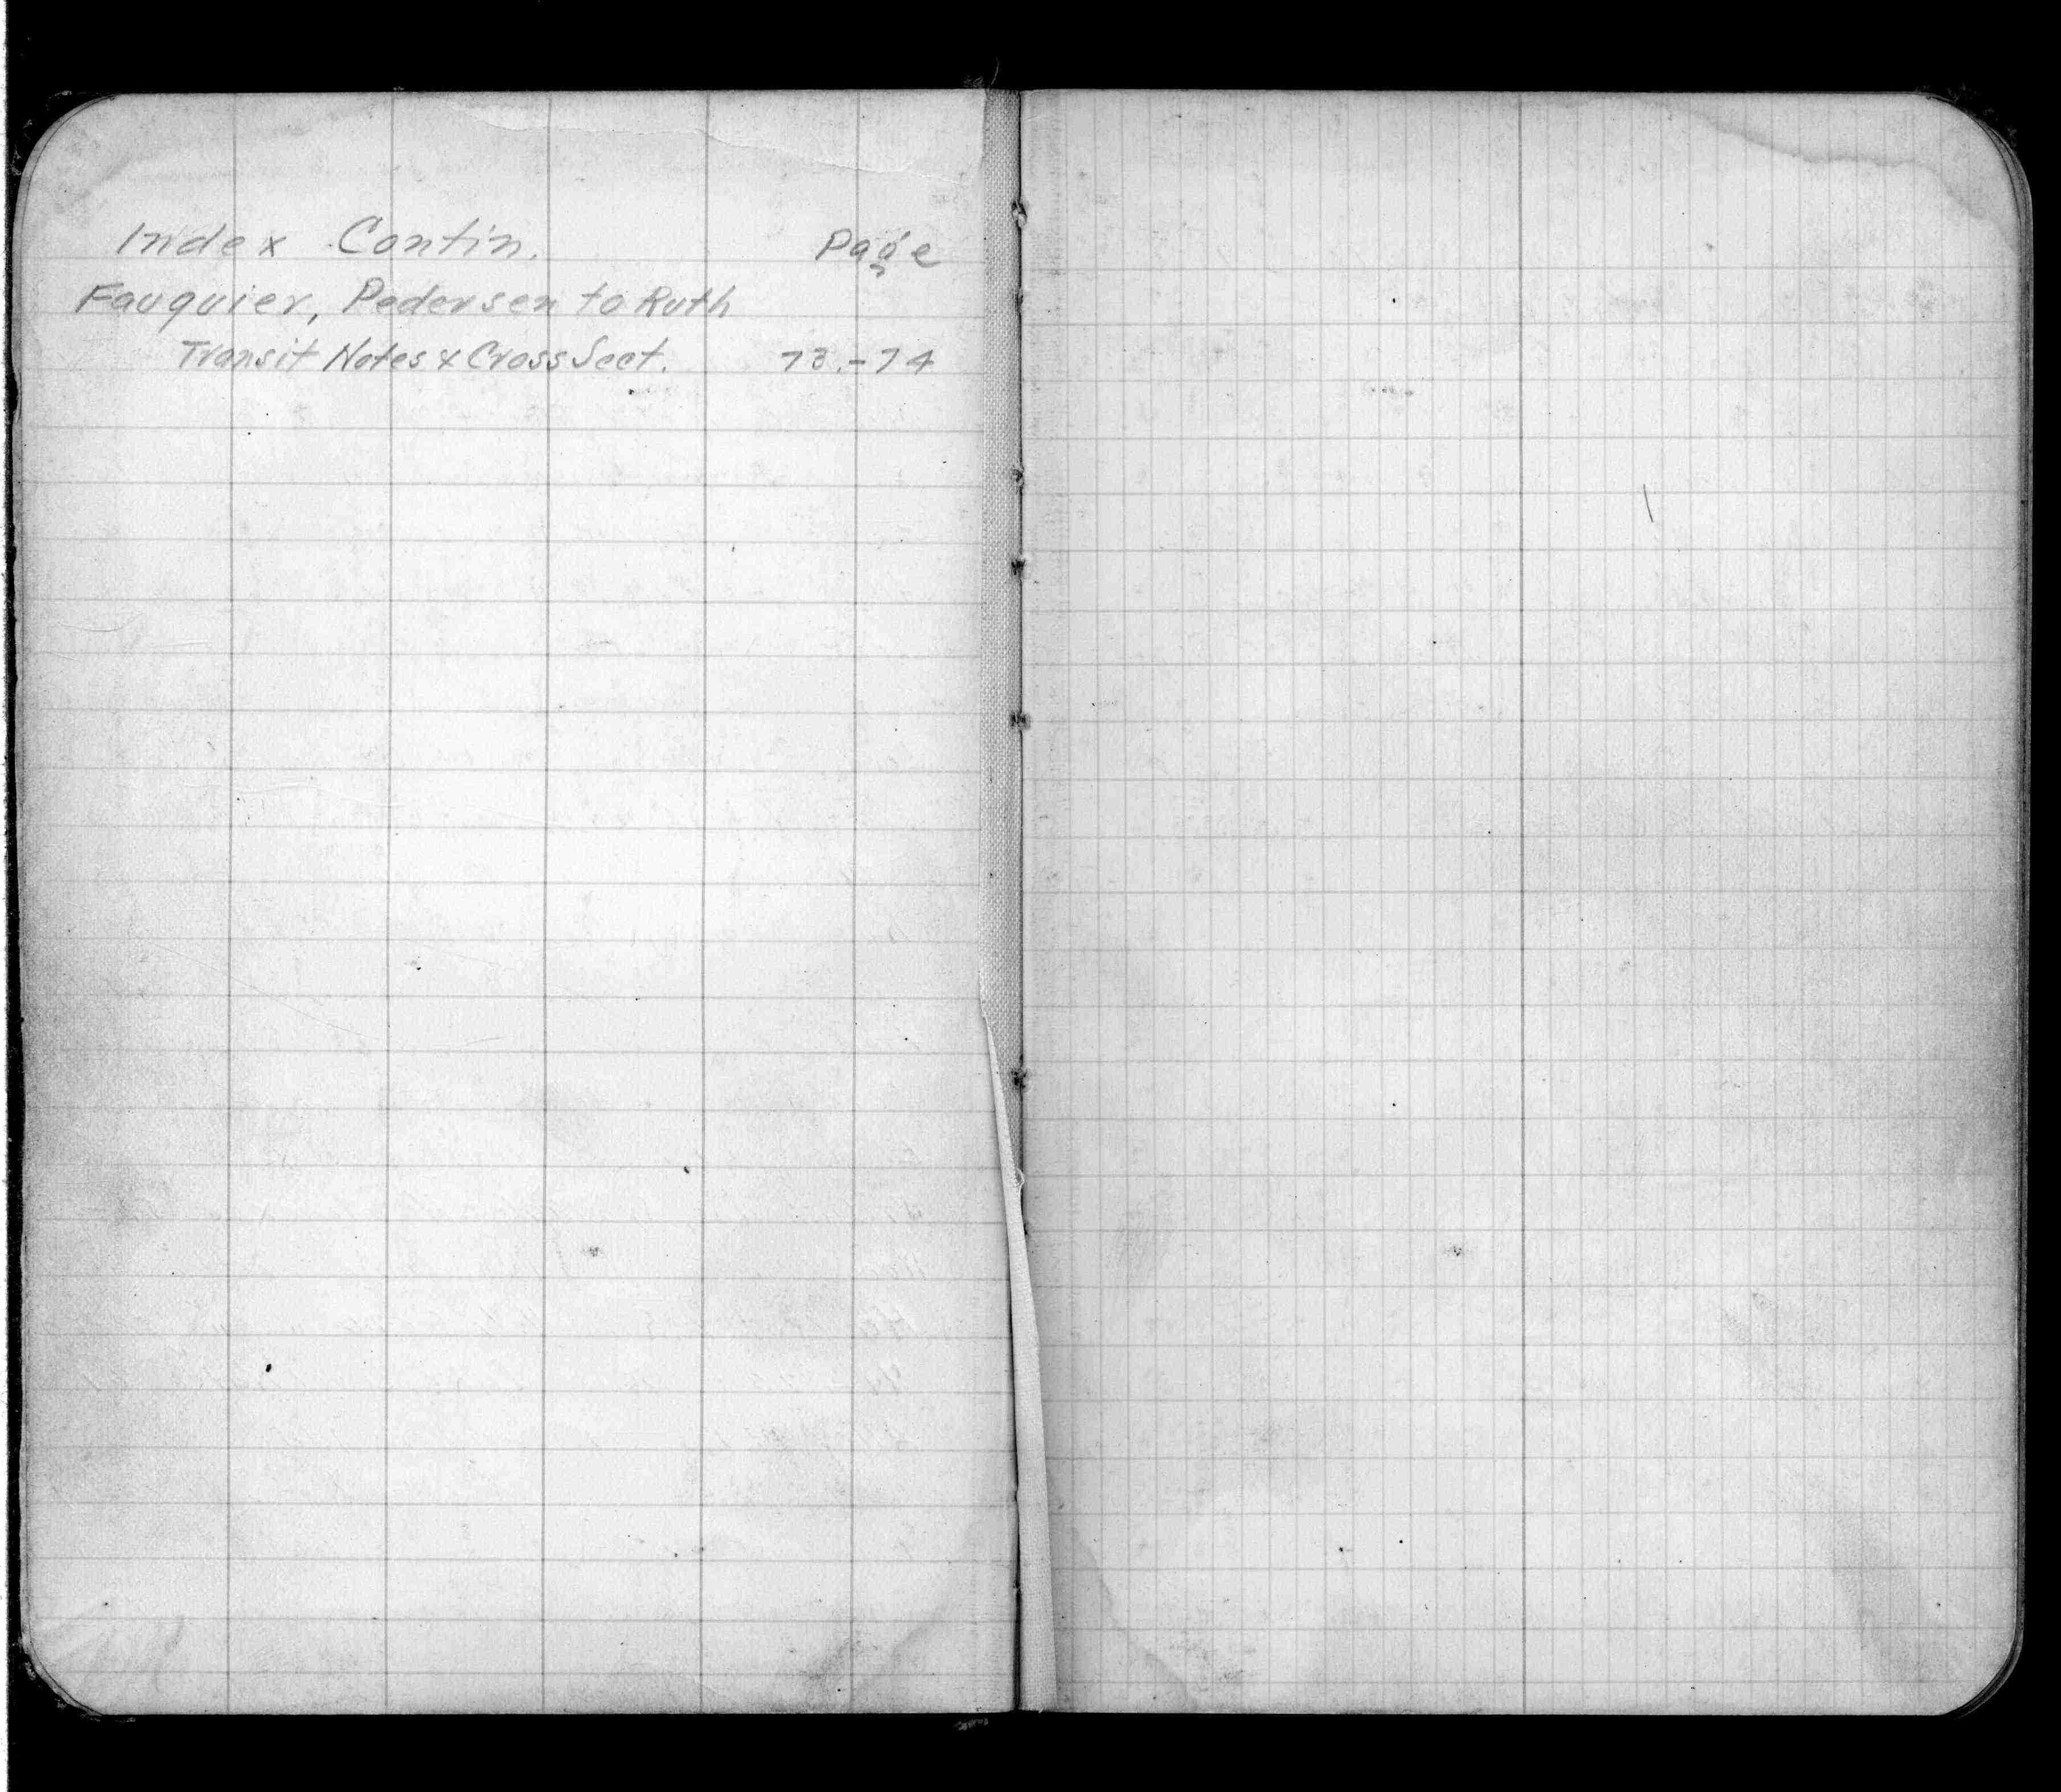 Index Contin. Page
Fauquier, Pedersen to Ruth
Transit Notes & Cross Sect. 73.-74